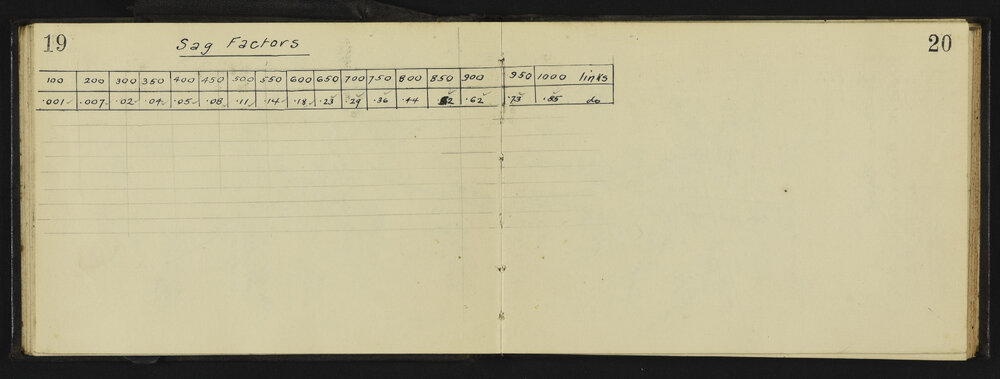 19
20
Sag Factors
100 200 300 350 400 450 500 550 600 650 700 750 800 850 900 950 1000 links
.001 .007 .02 .04 .05 .08 .11 .14 .18 .23 .29 .36 .44 .52 .62 .73 .85 do